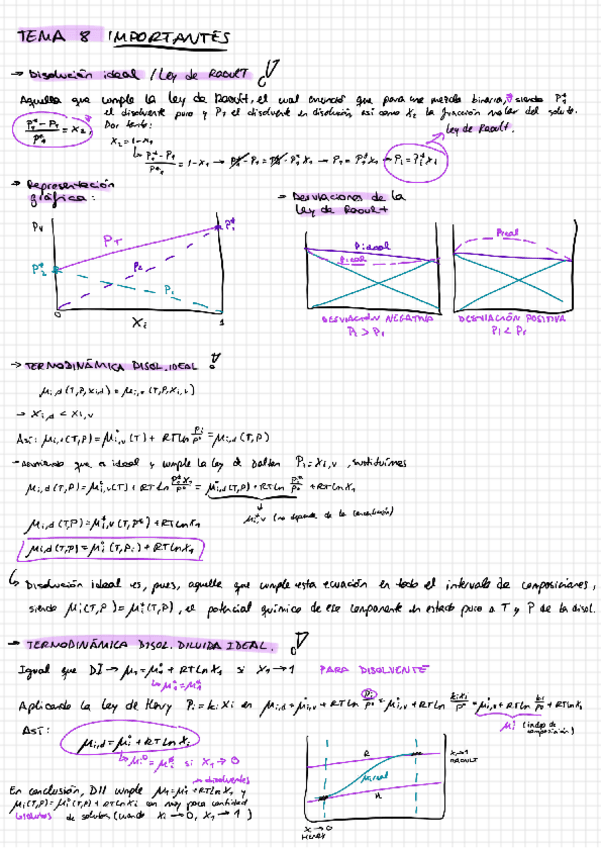 TEMA 8 IMPORTANTES
→ Disolución ideal / Ley de Raoult
Aquella que cumple la Ley de Raoult, el cual enunció que para una mezcla binaria, siendo P₁*
el disolvente puro y P₁ el disolvente en disolución, así como X₂ la fracción molar del soluto.
(P₁* - P₁)/P₁* = X₂, Por tanto:
X₂ = 1-X₁
↳ (P₁* - P₁)/P₁* = 1-X₁ → P₁* - P₁ = P₁* - P₁* X₁ → P₁ = P₁* X₁ → Pᵢ = Pᵢ* Xᵢ
Ley de Raoult.
→ Representación
gráfica:
→ Desviaciones de la
Ley de Raoult
P₁*
P_T
P₂*
P₂
P₁
0
Xᵢ
1
P ideal
P real
P real
DESVIACIÓN NEGATIVA
DESVIACIÓN POSITIVA
→ TERMODINÁMICA DISOL. IDEAL
μᵢ,d (T,P,Xᵢ,d) = μᵢ,v (T,P,Xᵢ,v)
→ Xᵢ,d < Xᵢ,v
Así: μᵢ,v(T,P) = μ°ᵢ,v (T) + RTLn Pᵢ/P° = μᵢ,d (T,P)
que es ideal y cumple la Ley de Dalton Pᵢ = Xᵢ,v , sustituimos
μᵢ,d (T,P) = μ°ᵢ,v(T) + RTLn P₁* X₁/P° = μ°ᵢ,v(T,P) + RTLn P₁*/P° + RTLn X₁
μ*ᵢ,v (no depende de la concentración)
μᵢ,d (T,P) = μ*ᵢ,v (T,P*) + RTLn X₁
μᵢ,d (T,P) = μ*ᵢ (T,P) + RTLn X₁
↳ Disolución ideal es, pues, aquella que cumple esta ecuación en todo el intervalo de composiciones,
siendo μᵢ(T,P) = μᵢ*(T,P), el potencial químico de ese componente en estado puro a T y P de la disol.
→ TERMODINÁMICA DISOL. DILUIDA IDEAL.
Igual que DI → μ₁ = μ₁° + RTLn X₁ si X₁ → 1 PARA DISOLVENTE
↳ μ₁° = μ₁*
Aplicando la Ley de Henry Pᵢ = kᵢ Xᵢ en μᵢ,d = μ°ᵢ,v + RTLn Pᵢ/P° = μ°ᵢ,v + RTLn kᵢXᵢ/P° = μ°ᵢ,v + RTLn kᵢ/P° + RTLn Xᵢ
μᵢ° (indep. de composición)
Así:
μᵢ,d = μᵢ° + RTLn Xᵢ
si Xᵢ → 0
→ disolventes
En conclusión, DII cumple μ₁ = μ₁° + RTLn X₁ y
μᵢ(T,P) = μᵢ°(T,P) + RTLn Xᵢ en muy poca cantidad
de solutos (cuando Xᵢ → 0, X₁ → 1)
R
μ real
H
X₁→1
RAOULT
Xᵢ → 0
HENRY